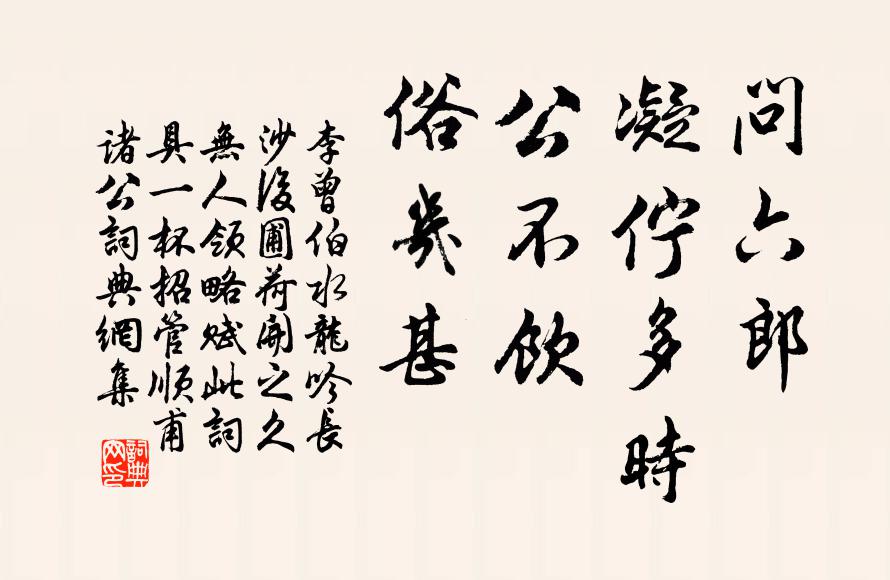 問六郎
凝佇多時
公不飲
俗幾甚
李曾伯水龍吟長
沙後圃荷開之久
無人領略賦此詞
具一杯招管順甫
諸公詞典網集
詞典
网印